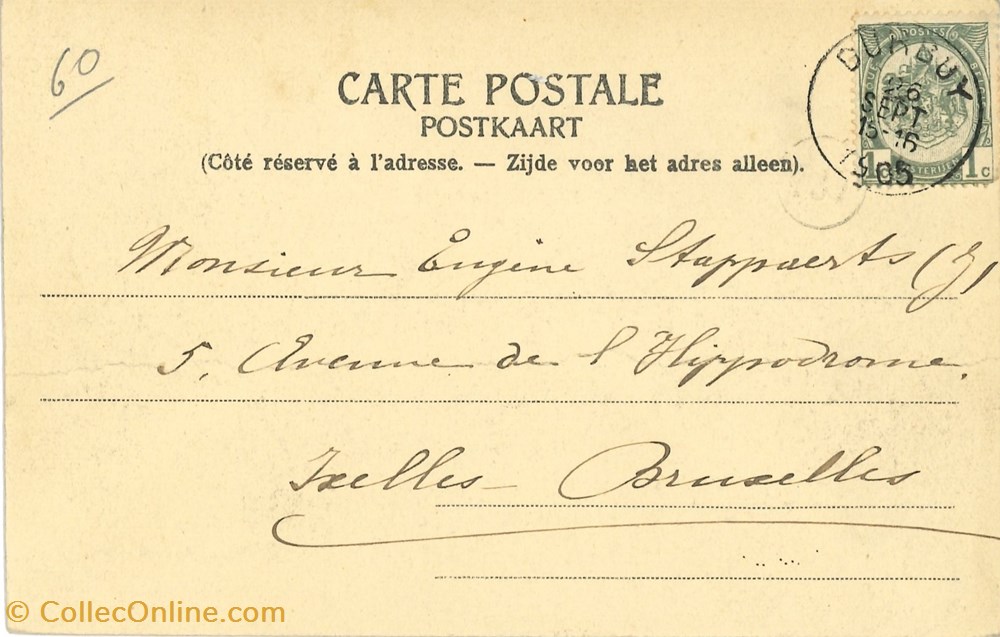 60
CARTE POSTALE
POSTKAART
(Côté réservé à l'adresse. — Zijde voor het adres alleen).
POSTES
DURBUY
28
SEPT
15-16
1905
1 1c
Monsieur Eugène Stappaerts (J)
5, Avenue de l'Hippodrome.
Ixelles - Bruxelles
© CollecOnline.com